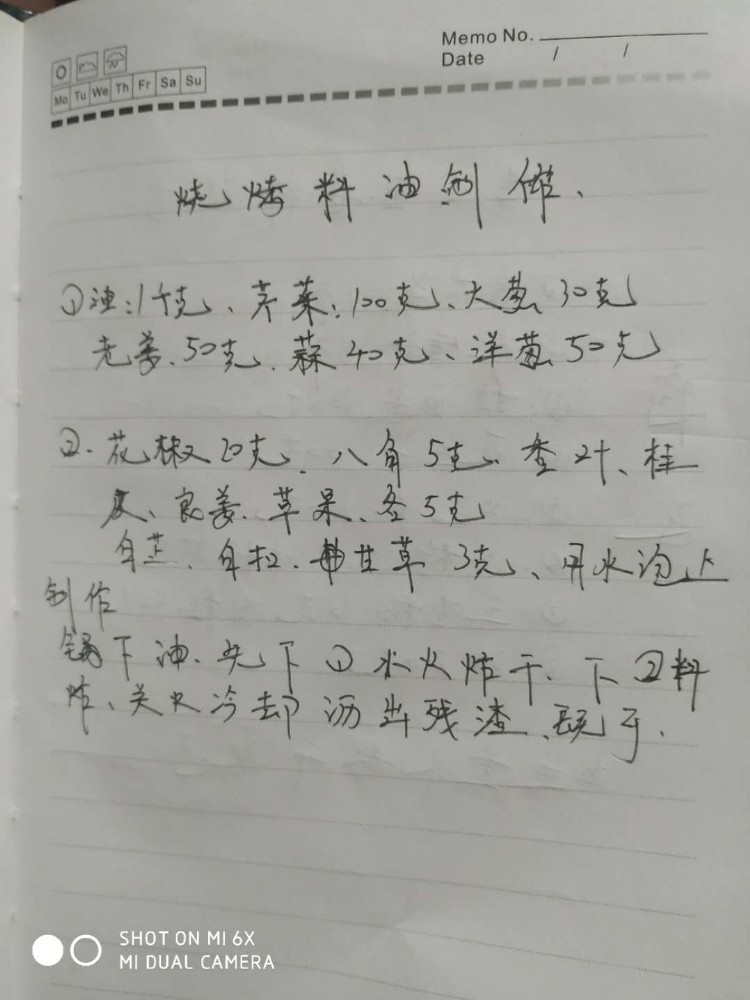 Memo No.
Date / /
Mo Tu We Th Fr Sa Su
烧烤料油制作、
①油:1千克、芹菜:100克、大葱30克
老姜、50克、蒜40克、洋葱50克
②.花椒20克、八角5克、香叶、桂
皮、良姜、草果、各5克
白芷、白扣、甘草3克、用水泡上
制作
锅下油、先下①水火炸干、下②料
炸、关火冷却沥出残渣、既可、
SHOT ON MI 6X
MI DUAL CAMERA